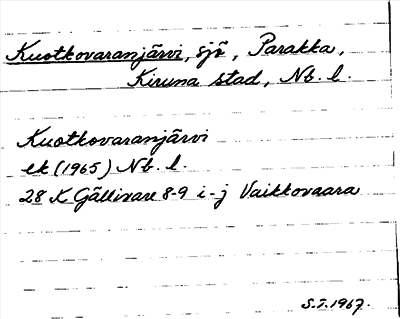 Kuotkovaranjärvi, sjö, Parakka,
Kiruna stad, Nb. l.
Kuotkovaranjärvi
ek (1965) Nb. l.
28 K Gällivare 8-9 i-j Vaikkovaara
S.I. 1967.